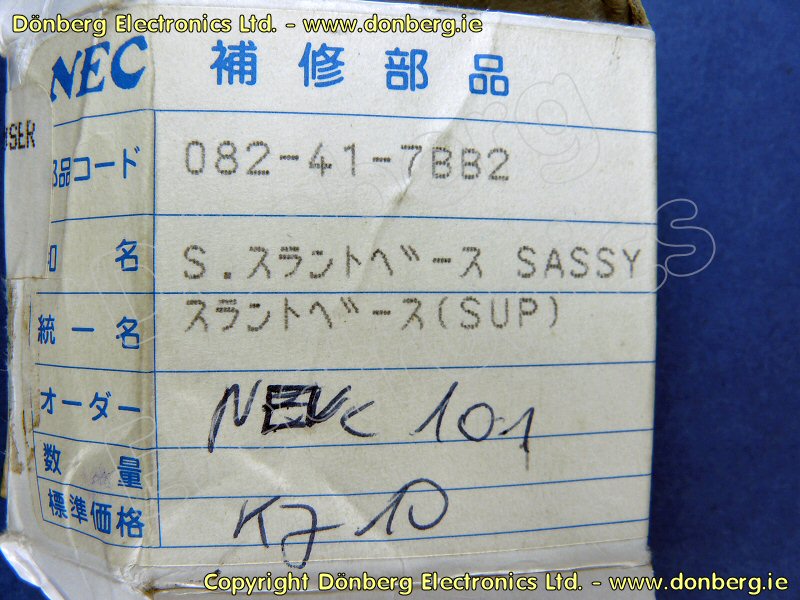 Dönberg Electronics Ltd. - www.donberg.ie
NEC 補修部品
SER
部品コード 082-41-7BB2
名 S.スラントベース SASSY
統一名 スラントベース(SUP)
オーダー 101
数量
標準価格 10
Copyright Dönberg Electronics Ltd. - www.donberg.ie